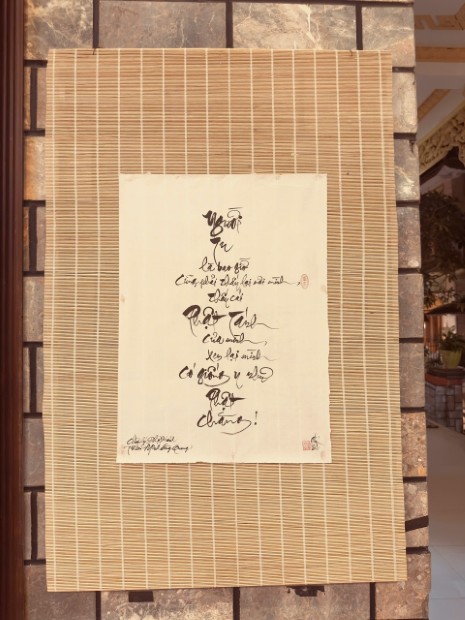 Người
Tu
là bao giờ
Cũng phải thấy lại nơi mình,
thấy cái
Phật Tánh
của mình,
xem lại mình
có giống y như
Phật
chăng!